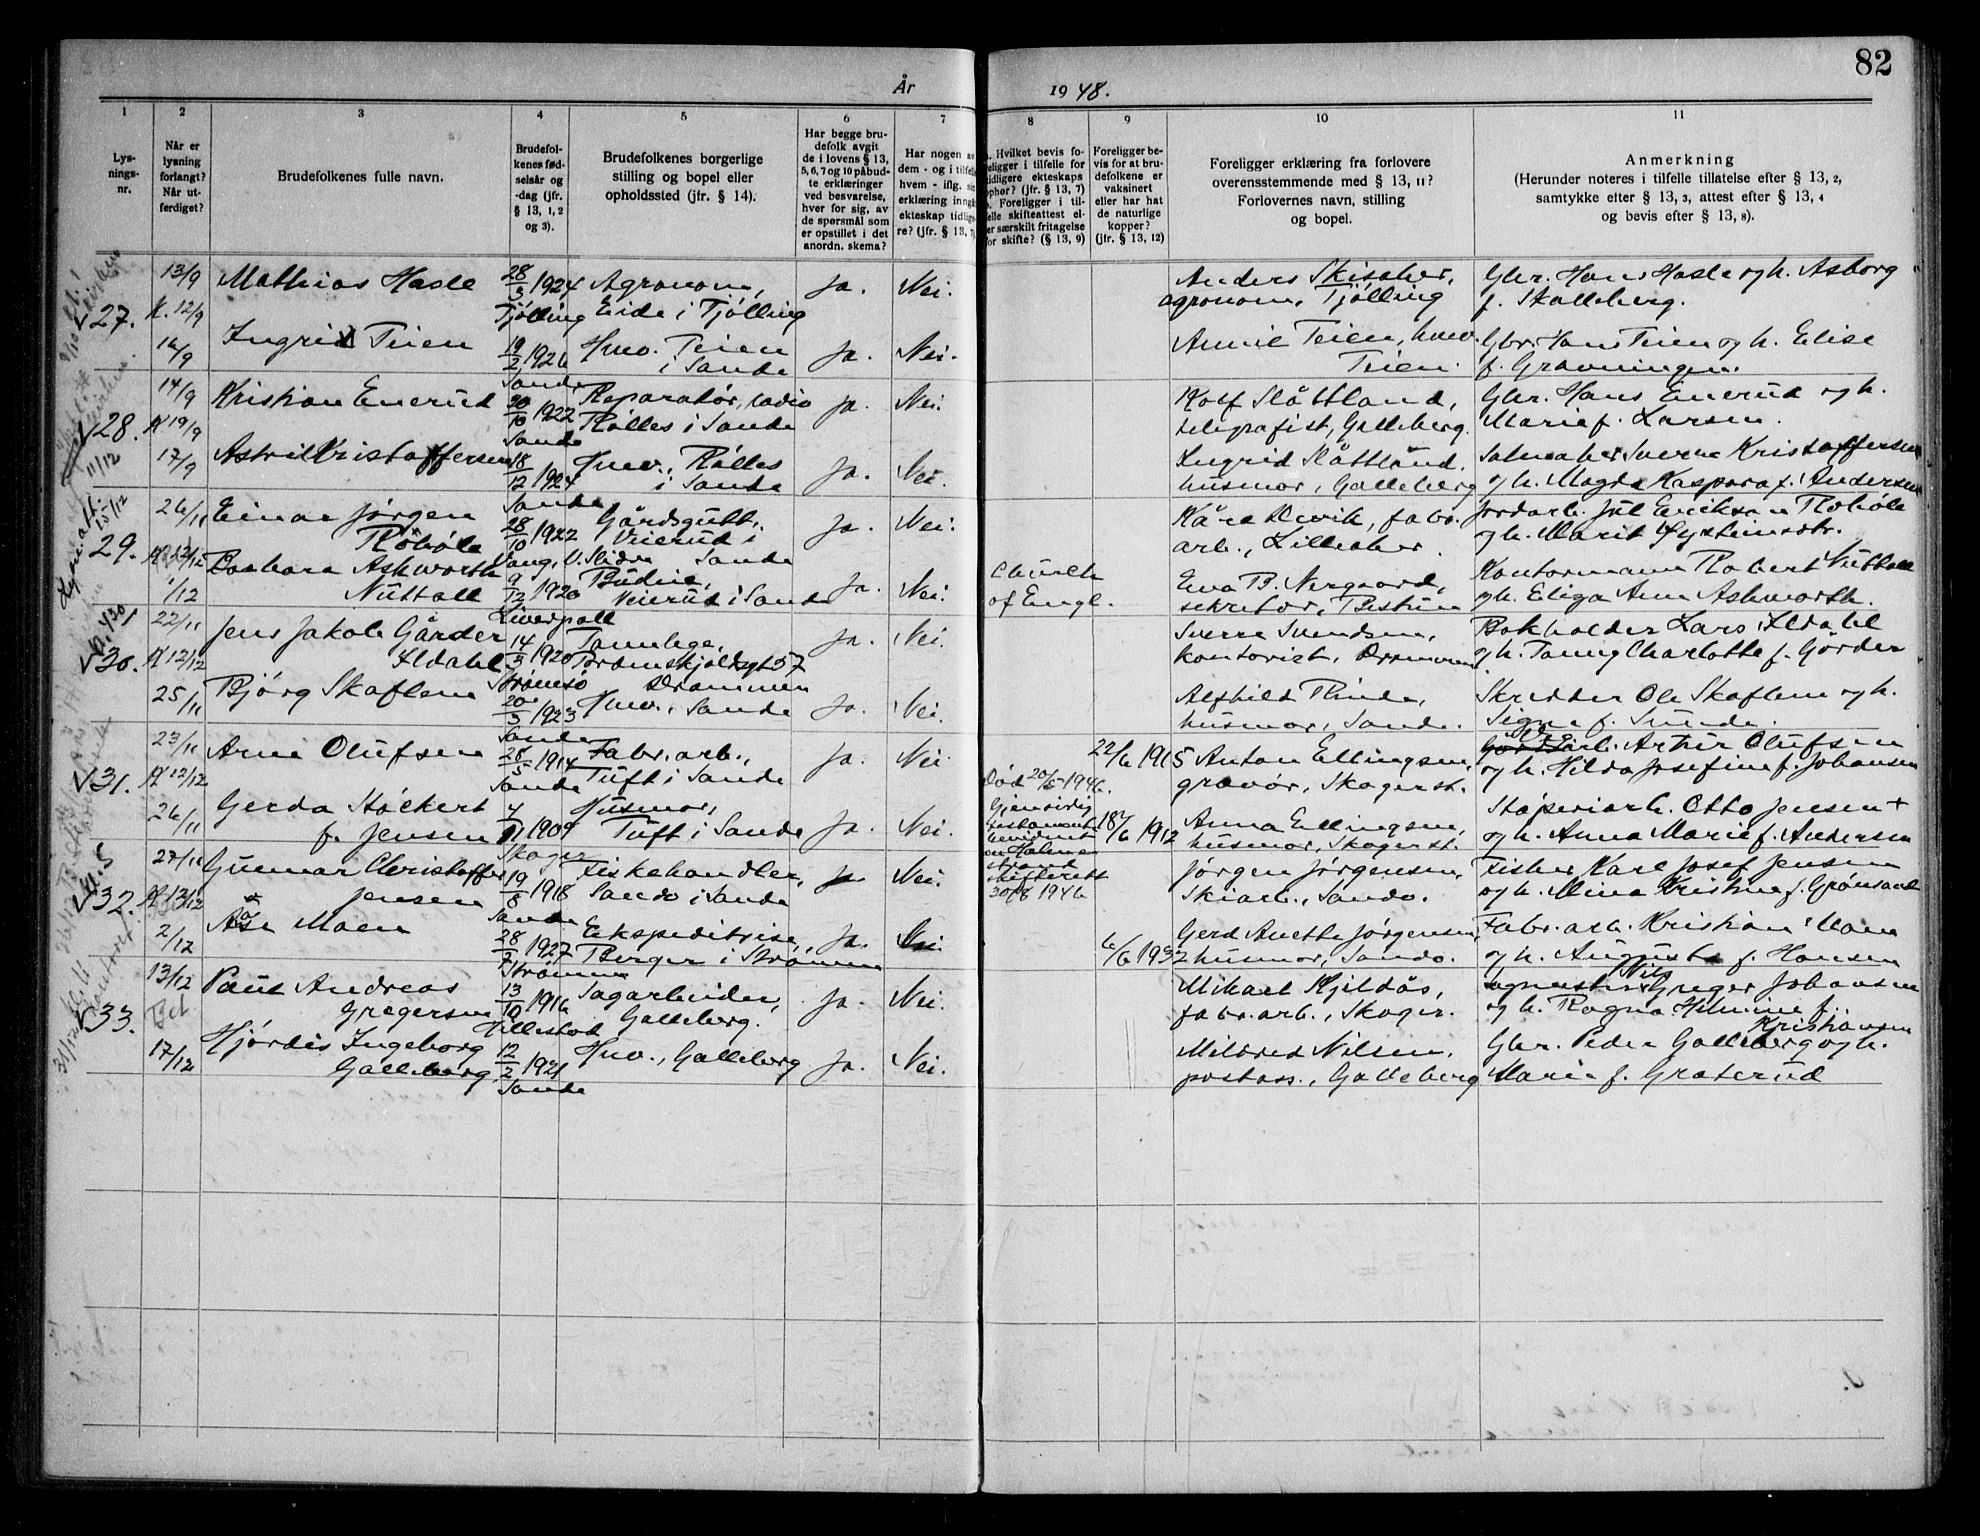 82
År 1948.
1
Lys-
nings-
nr.
2
Når er
lysning
forlangt?
Når ut-
ferdiget?
3
Brudefolkenes fulle navn.
4
Brudefol-
kenes fød-
selsår og
-dag (jfr.
§ 13, 1, 2
og 3).
5
Brudefolkenes borgerlige
stilling og bopel eller
opholdssted (jfr. § 14).
6
Har begge bru-
defolk avgit
de i lovens § 13,
5, 6, 7 og 10 påbud-
te erklæringer
ved besvarelse,
hver for sig, av
de spørsmål som
er opstillet i det
anordn. skema?
7
Har nogen av
dem - og i tilfelle
hvem - iflg. sin
erklæring inngått
ekteskap tidlige-
re? (jfr. § 13, 7)
8
Hvilket bevis fo-
religger i tilfelle for
tidligere ekteskaps
ophør? (jfr. § 13, 7)
Foreligger i til-
felle skifteattest el-
er særskilt fritagelse
for skifte? (§ 13, 9)
9
Foreligger be-
vis for at bru-
defolkene er
vaksinert
eller har hat
de naturlige
kopper?
(jfr. § 13, 12)
10
Foreligger erklæring fra forlovere
overensstemmende med § 13, 11?
Forlovernes navn, stilling
og bopel.
11
Anmerkning
(Herunder noteres i tilfelle tillatelse efter § 13, 2,
samtykke efter § 13, 3, attest efter § 13, 4
og bevis efter § 13, 8).
27.
13/9
K. 12/9
Mathias Hasle
28/3 1924
Tjölling
Agronom,
Eide i Tjölling
Ja.
Nei.
Anders Skisaker,
agronom, Tjölling
Gbr. Hans Hasle og h. Asborg
f. Skalleberg.
16/9
Ingrid Teien
19/2 1926
Sande
Hmv. Teien
i Sande
Ja.
Nei.
Teien, hmv.
Teien.
Gbr. Hans Teien og h. Elise
f. Gravningen.
28.
14/9
K 19/9
Kristian Enerud
20/10 1922
Sande
Reparatør, radio
Rölles i Sande
Ja.
Nei.
Rolf Slåttland,
telegrafist, Galleberg.
Gbr. Hans Enerud og h.
Marie f. Larsen.
17/9
Astrid Kristoffersen
18/12 1924
Sande
Hmv., Rölles
i Sande
Ja.
Nei.
Ingrid Slåttland,
husmor, Galleberg
Salmaker Sverre Kristoffersen
og h. Magda Kaspara f. Andersen
29.
26/11
K 12/12
Einar Jørgen
Robøle
28/10 1922
Vang, V. Slidre
Gårdsgutt,
Veierud i
Sande
Ja.
Nei.
Kåre Ulvik, fabr.
arb., Lilleaker.
Jordarb. Jul Erikson Robøle
og h. Marit Øysteinsdtr.
1/12
Barbara Ashworth
Nuttall
9/12 1920
Liverpoll
Budeie,
Veierud i Sande
Ja.
Nei.
Church
of Engl.
Eva B. Nergaard,
sekretær, Bestum
Kontormann Robert Nuttall
og h. Eliza Ann Ashworth.
30.
22/11
K 12/12
Jens Jakob Gårder
Ildahl
14/3 1920
Strömsö
Tannlege,
Tordenskjoldsgt 57
Drammen
Ja.
Nei.
Sverre Svendsen,
kontorist, Drammen
Bokholder Lars Ildahl
og h. Fanny Charlotte f. Görder
25/11
Bjørg Skaflem
20/3 1923
Sande
Hmv., Sande
Ja.
Nei.
Alfhild Rinde,
husmor, Sande.
Skredder Ole Skaflem og h.
Signe f. Sunde.
31.
23/11
K 12/12
Arne Olufsen
28/5 1914
Sande
Fabr. arb.,
Tuft i Sande
Ja.
Nei.
22/6 1915
Anton Ellingsen,
gravør, Skoger st.
arb. Artur Olufsen
og h. Hilda Josefine f. Johansen
26/11
Gerda Stöckert
f. Jensen
1909
Skoger
Husmor,
Tuft i Sande
Ja.
Nei.
Død 20/5 1946.
Gjensidig
testamente
bevidnet
av Holme-
strand
skifterett
30/8 1946
18/6 1912
Anna Ellingsen,
husmor, Skoger st.
Støperiarb. Otto Jensen
og h. Anna Marie f. Andersen
32.
27/11
K 13/12
Gunnar Christoffer
Jensen
19/8 1918
Sande
Fiskehandler,
Sando i Sande
Ja.
Nei.
Jørgen Jørgensen,
Skiarb., Sando.
Fisker Karl Josef Jensen
og h. Mina Kristine f. Grønsand
2/12
Åse Moen
28/2 1927
Strømm
Ekspeditrise,
Berger i Strømm
Ja.
Nei
6/6 1932
Gerd Anette Jørgensen,
husmor, Sando.
Fabr. arb. Kristian Moen
og h. Augusta f. Hansen
33.
13/12
Bet
Paul Andreas
Gregersen
13/10 1916
Hillestad
Sagarbeider,
Galleberg.
Ja.
Nei.
Mikael Kjildås,
fabr. arb., Skoger.
Nils Greger Johansen
og h. Ragna Helmine f.
Kristiansen
17/12
Hjördis Ingeborg
Galleberg
12/2 1921
Sande
Hmv., Galleberg
Ja.
Nei.
Mildred Nilsen,
postass., Galleberg
Gbr. Peder Galleberg og h.
Marie f. Graterud